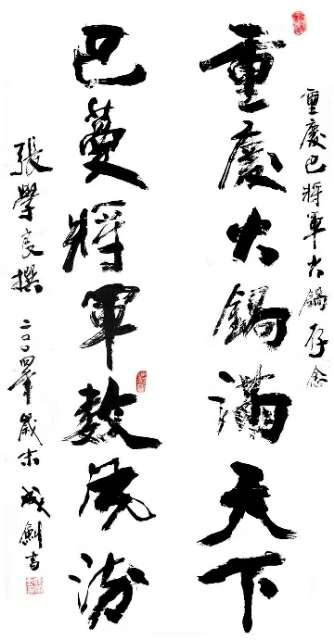 重慶巴將軍火鍋存念
重慶火鍋滿天下
巴蔓將軍數風流
張學良撰 二〇〇四年歲末